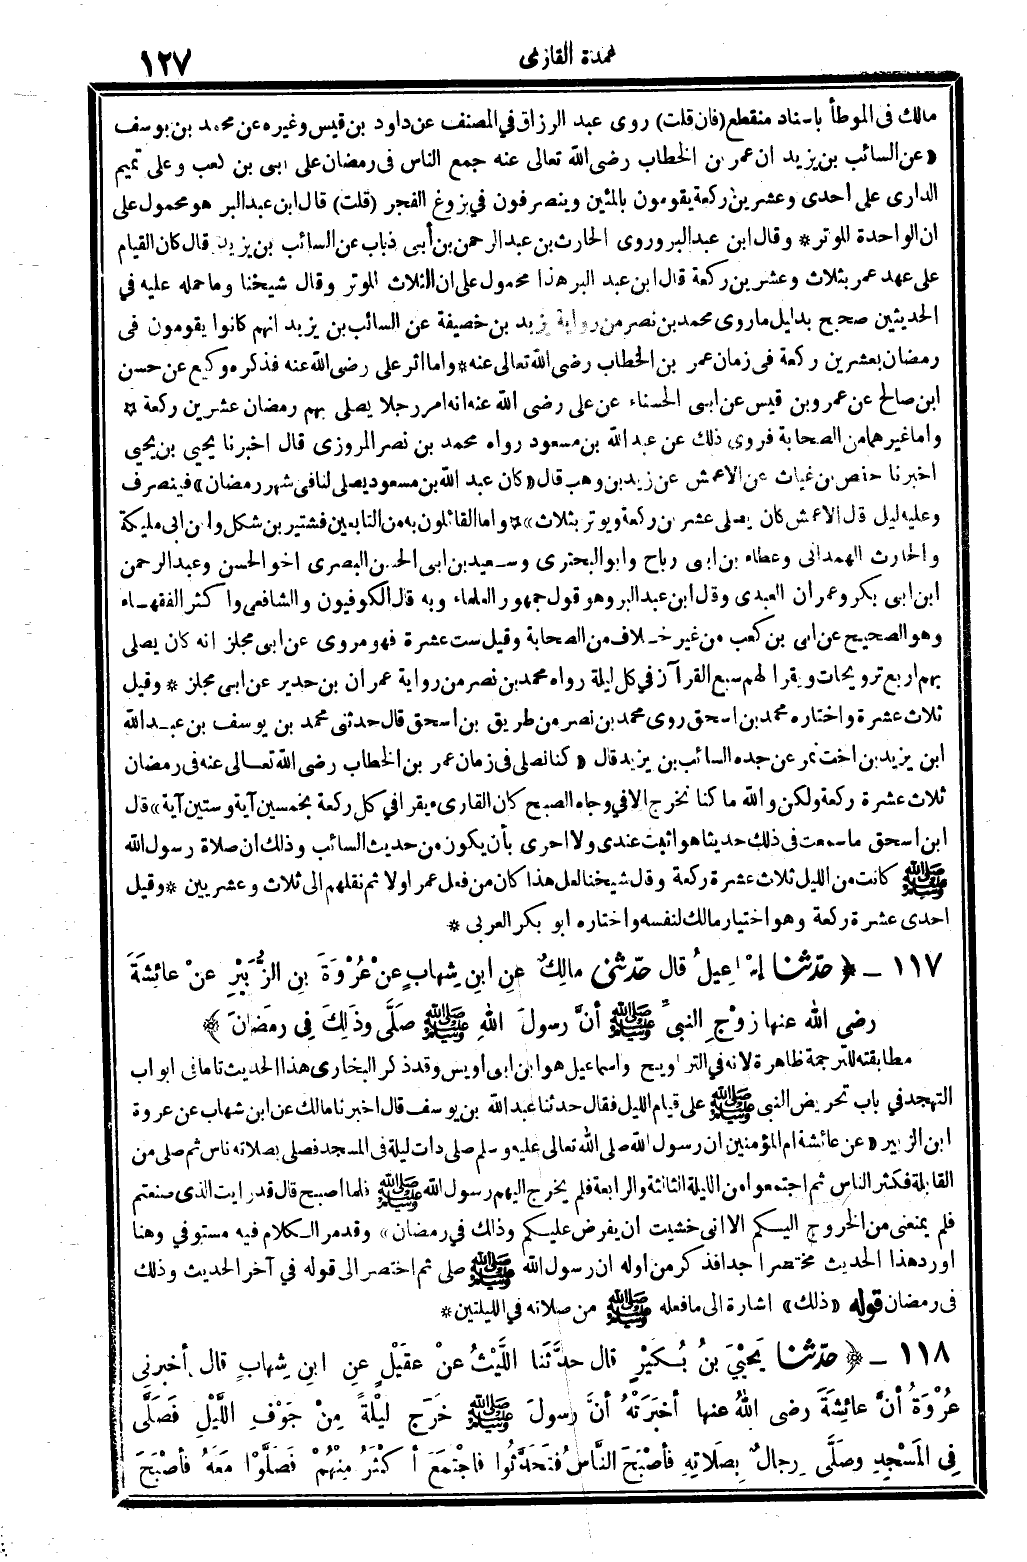 عمدة القارى ١٢٧
مالك فى الموطأ باسناد منقطع (فان قلت) روى عبد الرزاق فى المصنف عن داود بن قيس وغيره عن محمد بن يوسف
«عن السائب بن يزيد ان عمر بن الخطاب رضى الله تعالى عنه جمع الناس فى رمضان على ابى بن كعب وعلى تميم
الدارى على أحدى وعشرين ركعة يقومون بالمئين وينصرفون فى بزوغ الفجر (قلت) قال ابن عبد البر هو محمول على
ان الواحدة للوتر* وقال ابن عبد البر وروى الحارث بن عبد الرحمن بن أبى ذباب عن السائب بن يزيد قال كان القيام
على عهد عمر بثلاث وعشرين ركعة قال ابن عبد البر هذا محمول على ان الثلاث للوتر وقال شيخنا وما حمله عليه فى
الحديثين صحيح بدليل ما روى محمد بن نصر من رواية يزيد بن خصيفة عن السائب بن يزيد انهم كانوا يقومون فى
رمضان بعشرين ركعة فى زمان عمر بن الخطاب رضى الله تعالى عنه* واما اثر على رضى الله عنه فذكره وكيع عن حسن
ابن صالح عن عمرو بن قيس عن ابى الحسناء عن على رضى الله عنه انه امر رجلا يصلى بهم رمضان عشرين ركعة *
واما غيرهما من الصحابة فروى ذلك عن عبد الله بن مسعود رواه محمد بن نصر المروزى قال اخبرنا يحيى بن يحيى
اخبرنا حفص بن غياث عن الاعمش عن زيد بن وهب قال «كان عبد الله بن مسعود يصلى لنا فى شهر رمضان» فينصرف
وعليه ليل قال الاعمش كان يصلى عشرين ركعة ويوتر بثلاث»* واما القائلون به من التابعين فشتير بن شكل وابن ابى مليكة
والحارث الهمدانى وعطاء بن ابى رباح وابو البحترى وسعيد بن ابى الحسن البصرى اخو الحسن وعبد الرحمن
ابن ابى بكر وعمران العبدى وقال ابن عبد البر وهو قول جمهور العلماء وبه قال الكوفيون والشافعى واكثر الفقهاء
وهو الصحيح عن ابى بن كعب من غير خلاف من الصحابة وقيل ست عشرة فهو مروى عن ابى مجلز انه كان يصلى
بهم اربع ترويحات ويقرأ لهم سبع القرآن فى كل ليلة رواه محمد بن نصر من رواية عمران بن حدير عن ابى مجلز * وقيل
ثلاث عشرة واختاره محمد بن اسحق روى محمد بن نصر من طريق بن اسحق قال حدثنى محمد بن يوسف بن عبد الله
ابن يزيد بن اخت نمر عن جده السائب بن يزيد قال « كنا نصلى فى زمان عمر بن الخطاب رضى الله تعالى عنه فى رمضان
ثلاث عشرة ركعة ولكن والله ما كنا نخرج الا فى وجاه الصبح كان القارىء يقرأ فى كل ركعة بخمسين آية وستين آية» قال
ابن اسحق ما سمعت فى ذلك حديثا هو اثبت عندى ولا احرى بأن يكون من حديث السائب وذلك ان صلاة رسول الله
ﷺ كانت من الليل ثلاث عشرة ركعة وقال شيخنا لعل هذا كان من فعل عمر اولا ثم نقلهم الى ثلاث وعشريين * وقيل
احدى عشرة ركعة وهو اختيار مالك لنفسه واختاره ابو بكر العربى *
١١٧ ـ ﴿ حدّثنا إسماعيلُ قال حدّثنى مالكٌ عنِ ابنِ شِهابٍ عنْ عُرْوَةَ بنِ الزُّبَيْرِ عنْ عائِشَةَ
رضى الله عنها زوْجِ النبىِّ ﷺ أنَّ رسولَ اللهِ ﷺ صلَّى وذَلِكَ فى رمضَانَ ﴾
مطابقته للترجمة ظاهرة لانه فى التراويح واسماعيل هو ابن ابى اويس وقد ذكر البخارى هذا الحديث تاما فى ابواب
التهجد فى باب تحريض النبى ﷺ على قيام الليل فقال حدثنا عبد الله بن يوسف قال اخبرنا مالك عن ابن شهاب عن عروة
ابن الزبير «عن عائشة ام المؤمنين ان رسول الله صلى الله تعالى عليه وسلم صلى ذات ليلة فى المسجد فصلى بصلاته ناس ثم صلى من
القابلة فكثر الناس ثم اجتمعوا من الليلة الثالثة والرابعة فلم يخرج اليهم رسول الله ﷺ فلما اصبح قال قد رايت الذى صنعتم
فلم يمنعنى من الخروج اليكم الا انى خشيت ان يفرض عليكم وذلك فى رمضان» وقد مر الكلام فيه مستوفى وهنا
اورد هذا الحديث مختصرا جدا فذكر من اوله ان رسول الله ﷺ صلى ثم اختصر الى قوله فى آخر الحديث وذلك
فى رمضان قوله «ذلك» اشارة الى ما فعله ﷺ من صلاته فى الليلتين*
١١٨ ـ ﴿ حدّثنا يَحْيَ بنُ بُكَيْرٍ قال حدَّثَنا اللَّيْثُ عنْ عقَيْلٍ عنِ ابنِ شِهابٍ قال أخبرنى
عُرْوَةُ أنَّ عائِشَةَ رضى اللهُ عنها أخبَرَتْهُ أنَّ رسولَ ﷺ خرَج ليْلَةً مِنْ جَوْفِ اللَّيْلِ فَصَلَّى
فِى المَسْجِدِ وصَلَّى رِجالٌ بِصَلاتِهِ فأصْبَحَ النَّاسُ فَتَحَدَّثُوا فاجْتمَعَ أكْثَرُ مِنْهُمْ فَصَلَّوْا مَعَهُ فأصْبَحَ